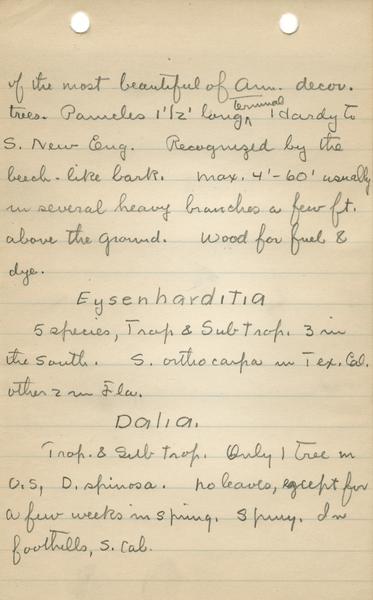 of the most beautiful of Am. decor.
trees. Panicles 1'1/2' long, terminal Hardy to
S. New Eng. Recognized by the
beech-like bark. max. 4'-60' usually
in several heavy branches a few ft.
above the ground. Wood for fuel &
dye.
Eysenharditia
5 species, Trop & Sub trop. 3 in
the South. S. orthocarpa in Tex. Cal.
other 2 in Fla.
Dalia.
Trop. & Sub trop. Only 1 tree in
U.S, D. spinosa. no leaves, except for
a few weeks in spring. Spiny. In
foothills, S. Cal.